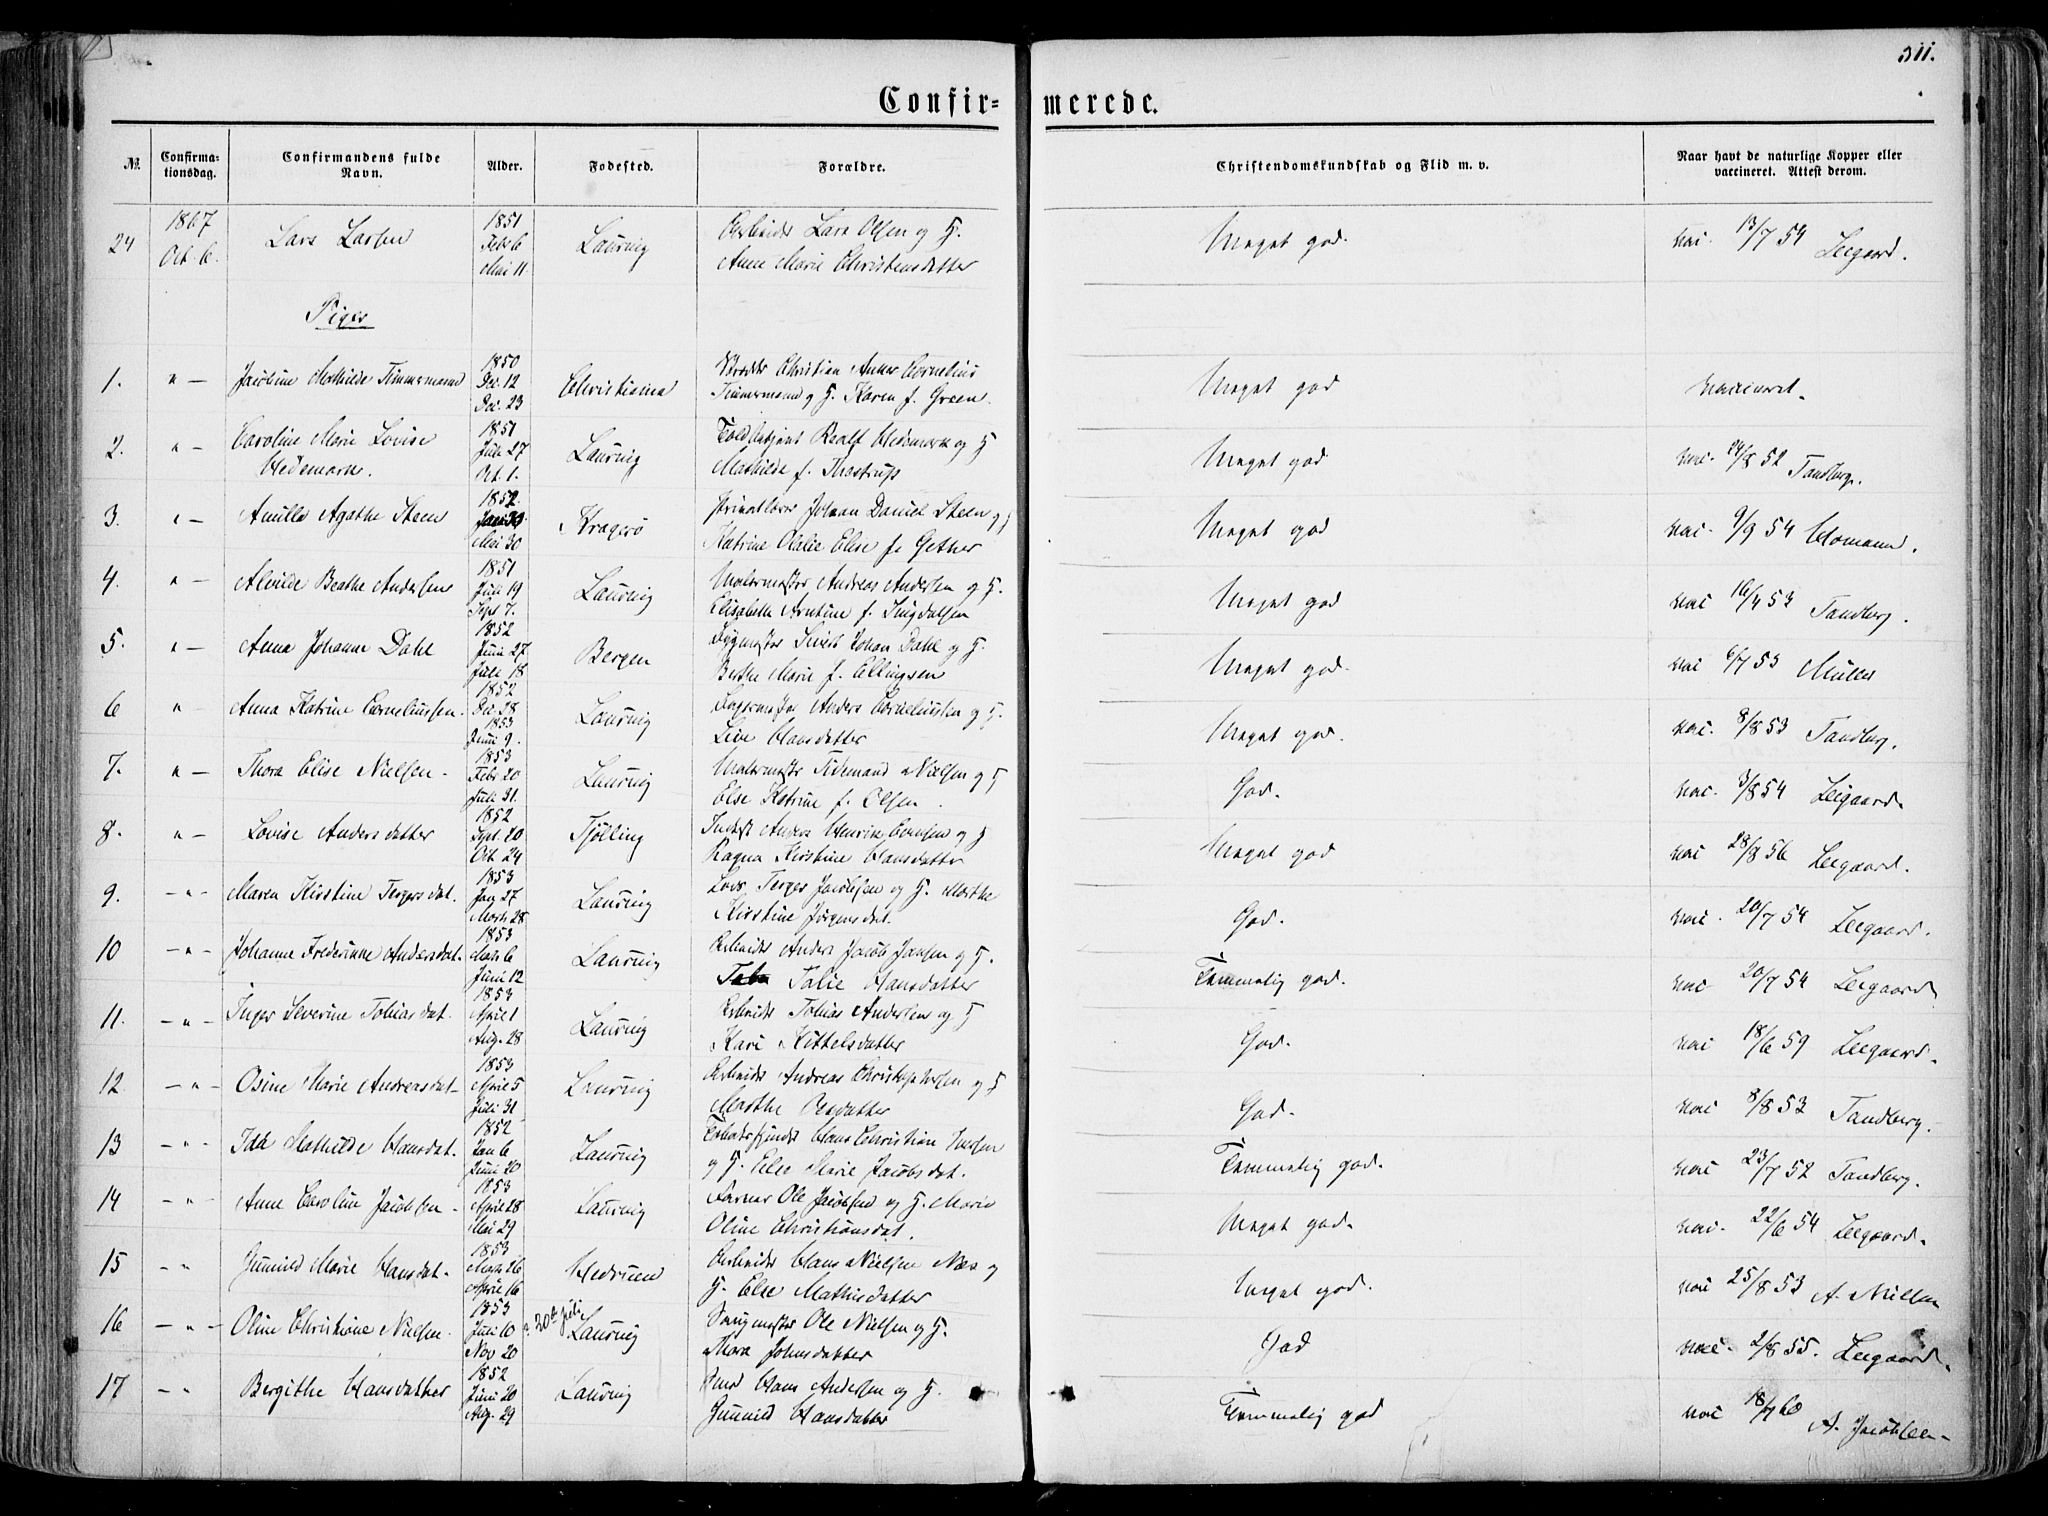 311.
Confir-
merede.
№.
Confirma-
tionsdag.
Confirmandens fulde
Navn.
Alder.
Fødested.
Forældre.
Christendomskundskab og Flid m. v.
Naar havt de naturlige Kopper eller
vaccineret. Attest derom.
24 1867 Oct. 6. Lars Larsen 1851 Febr 6 Mai 11. Laurvig Arbeider Lars Olsen og H. Anne Marie Christensdatter Meget god. vac. 13/7 54 Leegaard.
Piger
1. " — Jacobine Mathilde Timmermann 1850 Dec. 12 Dec. 23 Christiania Christian Anker Cornelius Timmermann og H. Karen f. Green. Meget god vaccineret.
2. " — Caroline Marie Lovise Hedemark. 1851 Juli 27 Oct. 1. Laurvig Toldbetjent Realf Hedemark og H Mathilde f. Thostrup Meget god vac. 24/8 52 Tandberg.
3. " — Amilla Agathe Steen 1852 Mai 30 Kragerø Johan Daniel Steen og H Katrine Olalie Elise f. Gether Meget god vac. 9/9 54 Homann.
4. " — Alvilde Beathe Andersen 1851 Juli 19 Sept 7. Laurvig Malermester Andreas Andersen og H. Elisabeth Arntine f. Meget god vac 16/4 53 Tandberg.
5. " — Anna Johanne Dahl 1852 Juni 27 Juli 18 Bergen Sivert Johan Dahl og H. Berthe Marie f. Ellingsen Meget god. vac 6/7 53 Müller
6 " — Anna Katrine Corneliussen. 1852 Dec. 28 1853 Juni 9. Laurvig Anders Corneliussen og H. Live Hansdatter Meget god. vac. 8/8 53 Tandberg.
7. " — Thora Elise Nielsen 1853 Febr 20 Juli 31. Laurvig Malermester Tidemand Nielsen og H Else Katrine f. Olsen. God. vac. 3/8 54 Leegaard.
8. " — Lovise Andersdatter 1852 Sept. 20 Oct. 24 Tjølling Anders Henrik Evensen og H Ragna Kirstine Hansdatter Meget god vac 28/8 56 Leegaard.
9. — " — Maren Kirstine Tergersdat. 1853 Jan 27 Marts 28. Laurvig Lods Terger Jacobsen og H. Marthe Kirstine Jørgensdat. God. vac. 20/7 54 Leegaard.
10 — " — Johanne Frederikke Andersdat. 1853 Marts 6 Juni 12 Laurvig Arbeider Anders Jacob Jansen og H. Talie Hansdatter Temmelig god. vac 20/7 54 Leegaard
11. — " — Inger Severine Tobiasdat. 1853 April 1 Aug. 28 Laurvig Arbeider Tobias Andersen og H Kari Kittelsdatter God. vac 18/6 59 Leegaard.
12 — " — Osine Marie Andreasdat 1853 April 5 Juli 31 Laurvig Arbeider Andreas Christophersen og H Marthe Olesdatter God. vac 8/8 53 Tandberg.
13 — " — Ida Mathilde Hansdat. 1852 Jan 6 Juni 20 Laurvig Hans Christian Iversen og H. Else Marie Jacobsdat. Temmelig god. vac 23/7 52 Tandberg.
14 — " — Anne Caroline Jacobsen 1853 April 28 Mai 29 Laurvig Farver Ole Jacobsen og H. Marie Oline Christiansdat. Meget god. vac. 22/6 54 Leegaard.
15 — " Gunild Marie Hansdat. 1853 Marts 26 April 16 Hedrum Arbeider Hans Nielsen Næs og H. Else Mathisdatter Meget god. vac 25/8 53 A. Nielsen
16 — " — Oline Christiane Nielsen. 1853 Juli 10 Nov 20 30te juli Laurvig Ole Nielsen og H. Thora Johnsdatter God vac. 2/8 55. Leegaard.
17 — " Bergithe Hansdatter 1852 Juni 20 Aug. 29 Laurvig Hans Andersen og H. Gunild Hansdatter Temmelig god vac 18/7 60 A. Jacobsen